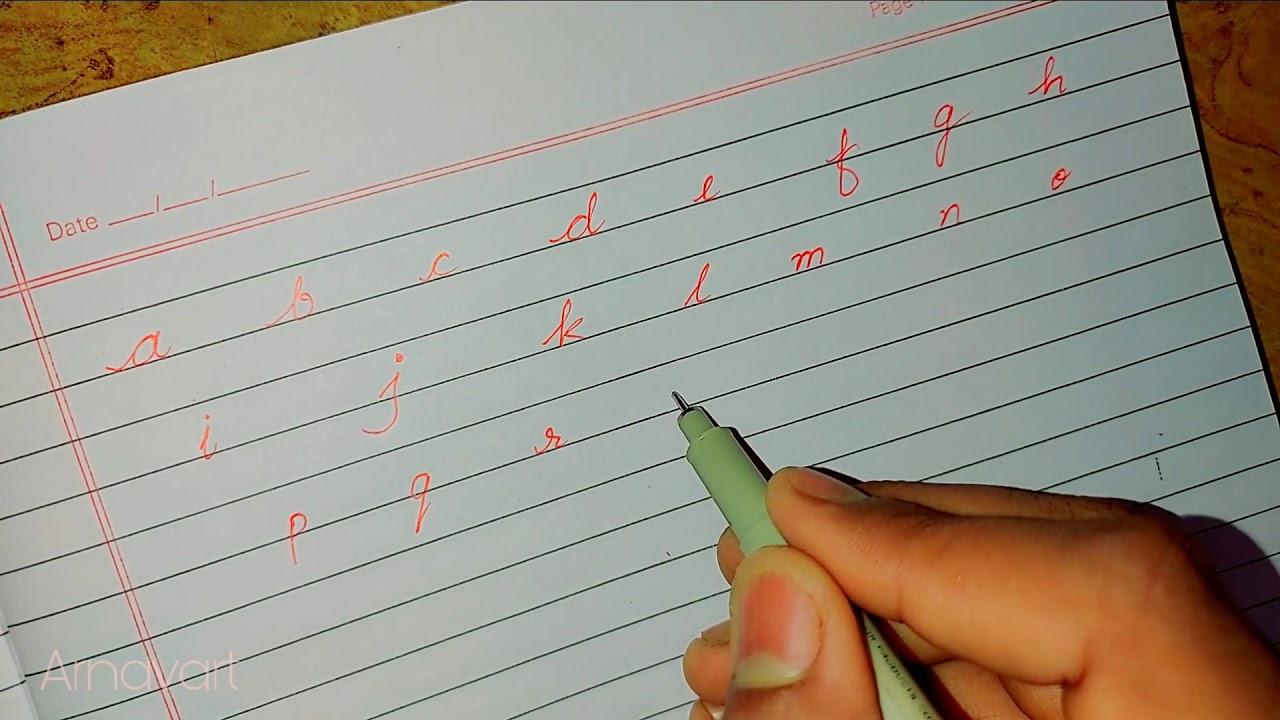 Page
Date __/__/____
a b c d e f g h
i j k l m n o
p q r
Arnavart